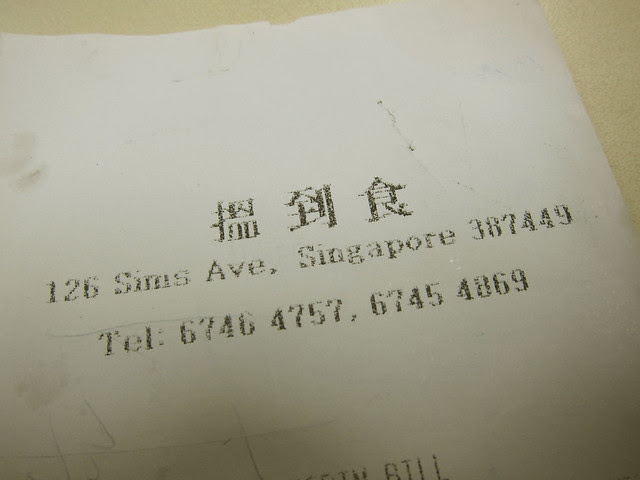 搵到食
126 Sims Ave, Singapore 387449
Tel: 6746 4757, 6745 4869
BILL